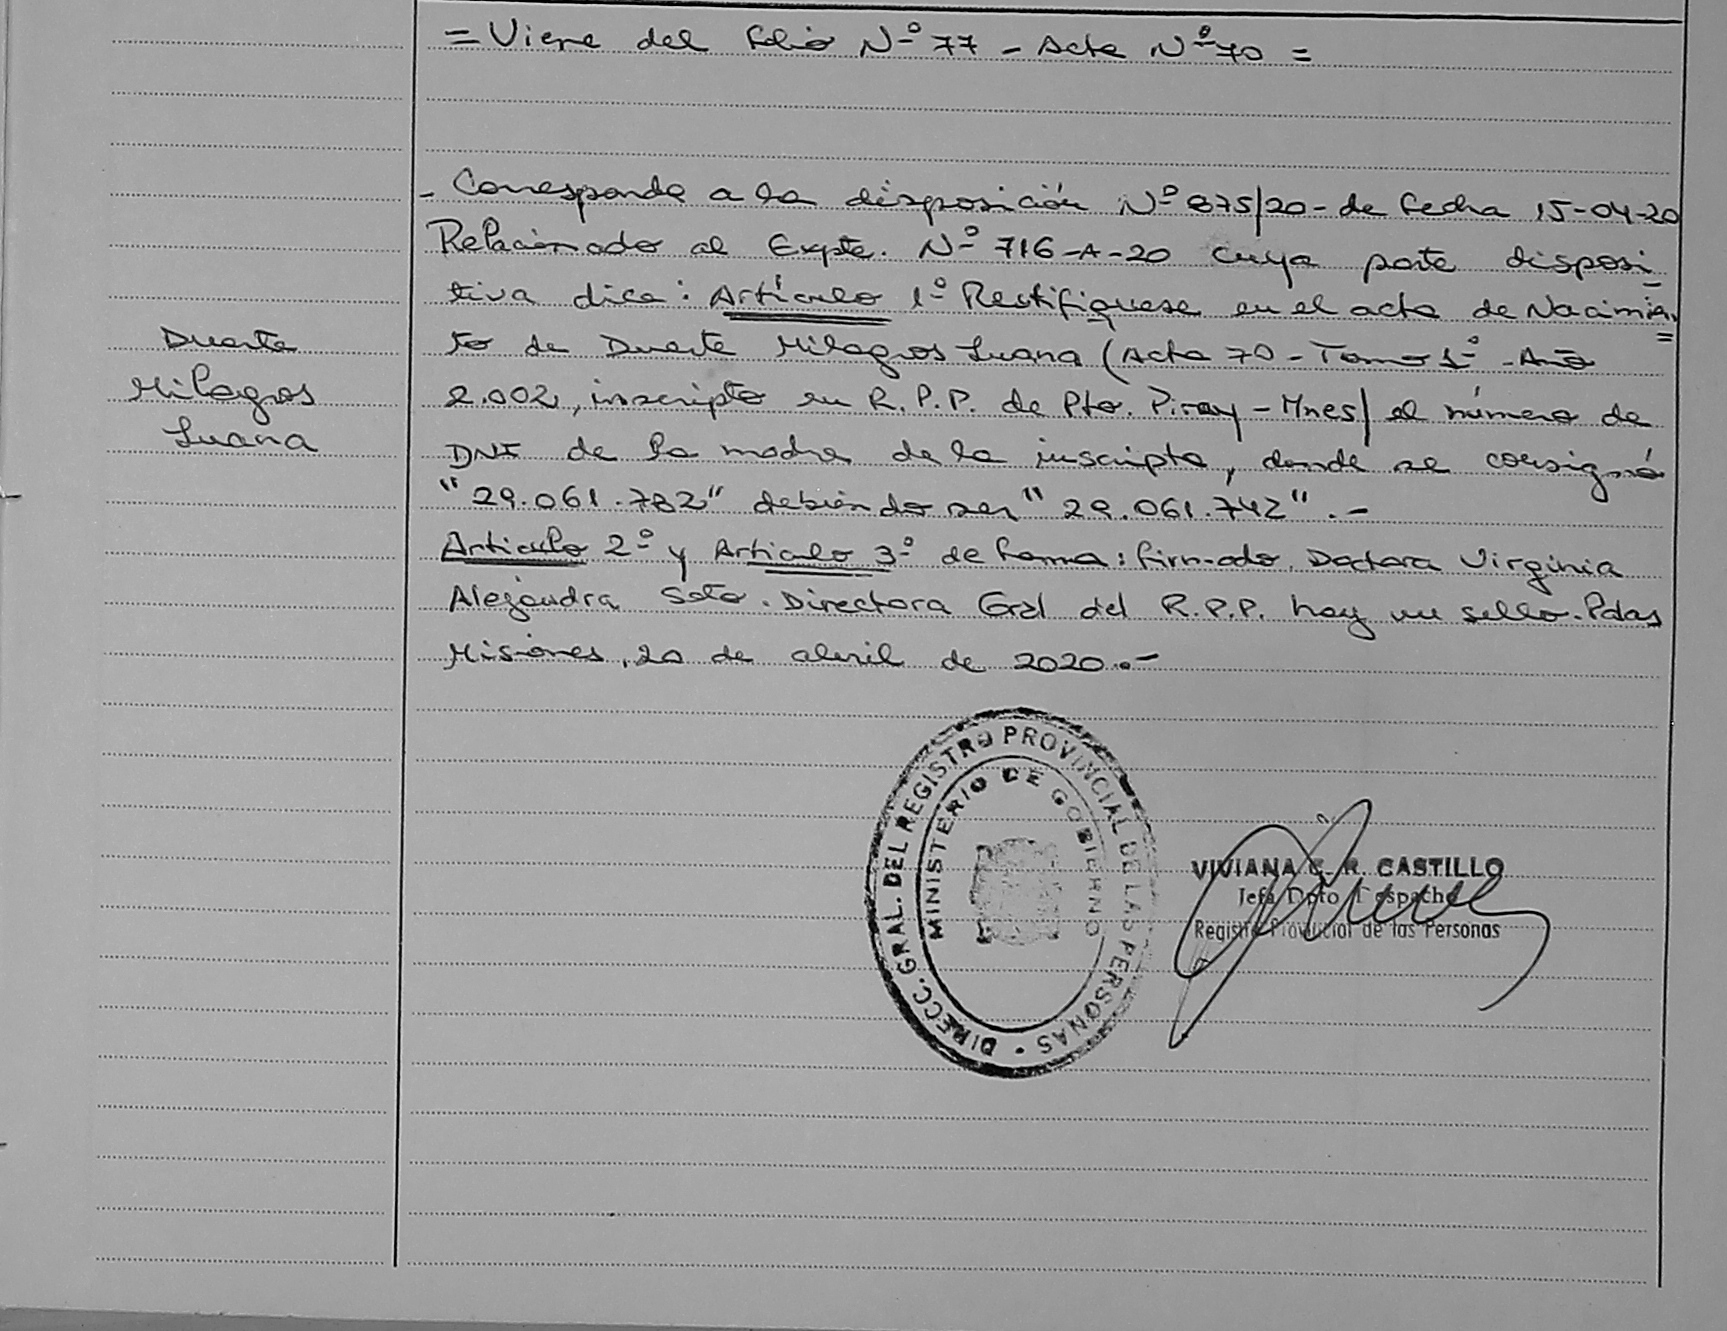 = Viene del folio Nº 77 - Acta Nº 70 =
- Corresponde a la disposición Nº 875/20 - de fecha 15-04-20
Relacionado al Expte. Nº 716-A-20 cuya parte disposi
tiva dice: Artículo 1º Rectifiquese en el acta de Nacimien
to de Duarte Milagros Luana (Acta 70 - Tomo 1º - Año
2.002, inscripta en R.P.P. de Pto. Piray - Mnes/ el número de
DNI de la madre de la inscripta, donde se consignó
"29.061.782" debiendo ser "29.061.742".-
Articulo 2º y Articulo 3º de forma: firmado. Doctora Virginia
Alejandra Soto. Directora Gral del R.P.P. hay un sello. Pdas
Misiones, 20 de abril de 2020.-
Duarte
Milagros
Luana
DIRECC. GRAL. DEL REGISTRO PROVINCIAL DE LAS PERSONAS
MINISTERIO DE GOBIERNO
VIVIANA R. CASTILLO
Jefa Dpto Despacho
Registro Provincial de las Personas